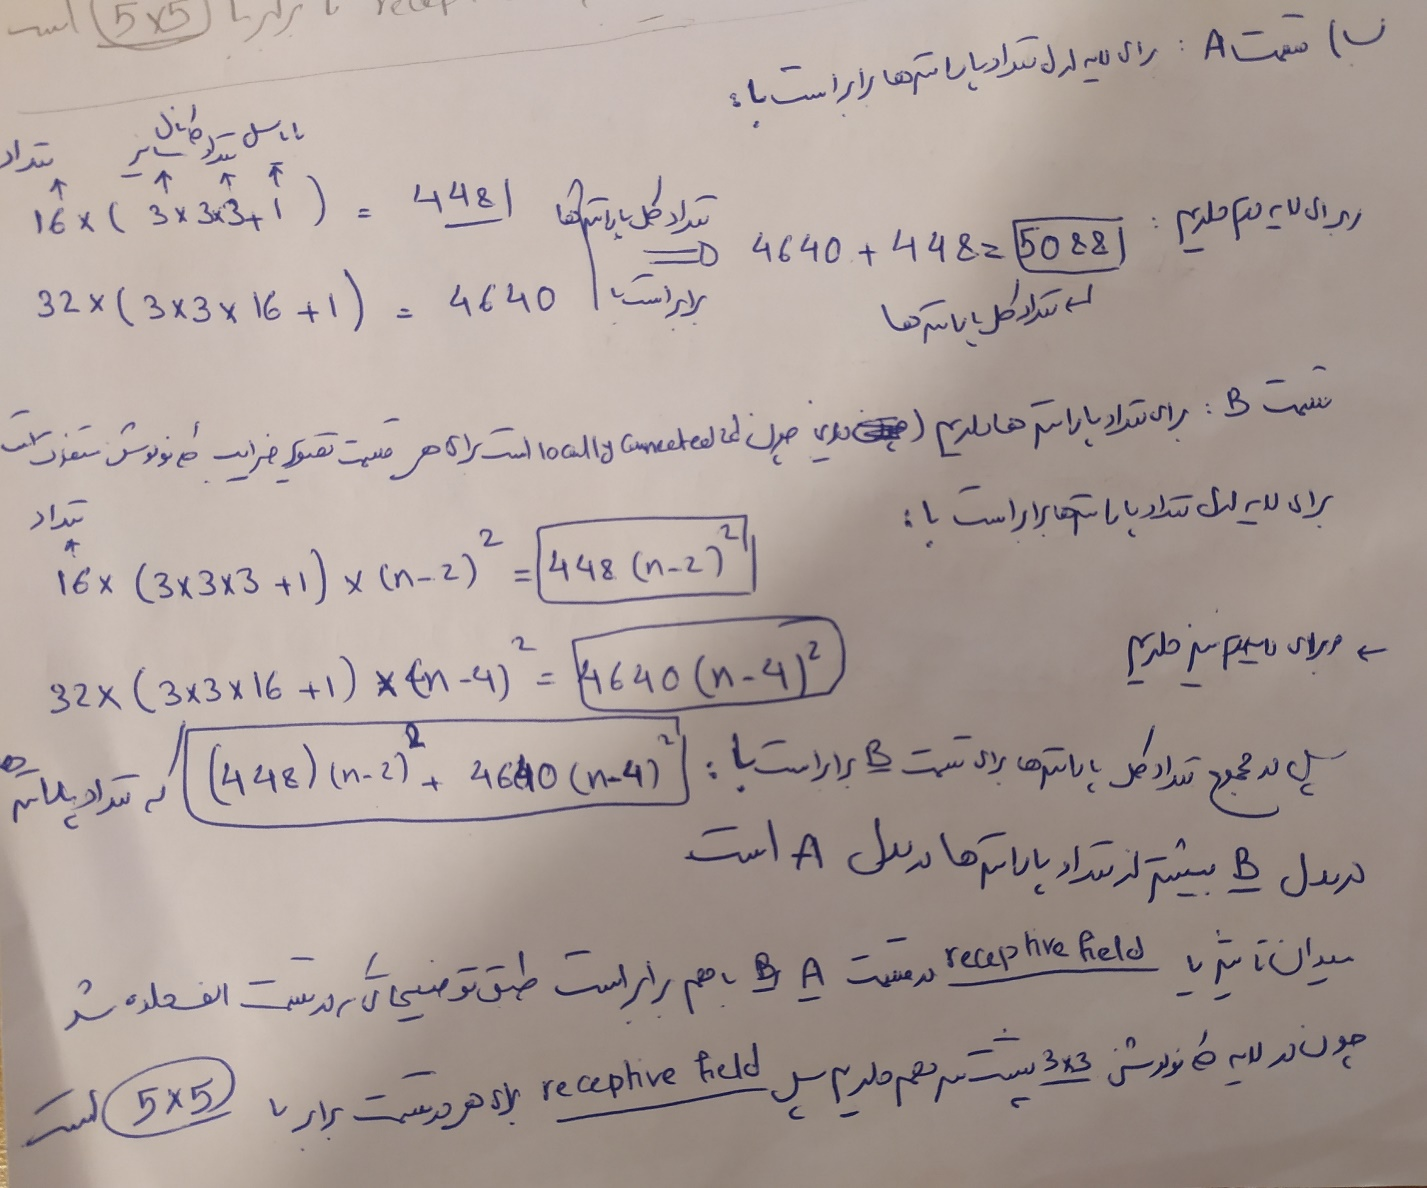 است (5×5) با برابر receptive
ب) قسمت A : برای لایه اول تعداد پارامترها برابر است با :
تعداد سایز تعداد کانال بایاس
16 × ( 3 × 3×3 + 1 ) = 448
و برای لایه دوم داریم :
32 × ( 3×3×16 + 1 ) = 4640
تعداد کل پارامترها برابر است با ⇒ 4640 + 448 = 5088
تعداد کل پارامترها
قسمت B : برای تعداد پارامترها داریم ( چون locally connected 2d است برای هر قسمت تصویر ضرایب کانولوشن متفاوت است
برای لایه اول تعداد پارامترها برابر است با :
تعداد
16 × (3×3×3 +1) × (n-2)² = 448 (n-2)²
← و برای لایه دوم نیز داریم
32 × (3×3×16 +1) × (n-4)² = 4640 (n-4)²
پس در مجموع تعداد کل پارامترها برای قسمت B برابر است با : (448)(n-2)² + 4640 (n-4)² که تعداد پارامترها
در مدل B بیشتر از تعداد پارامترها در مدل A است
میدان تاثیر یا receptive field در قسمت A و B با هم برابر است طبق توضیحاتی که در قسمت الف داده شد
چون دو لایه کانولوشن 3×3 پشت سر هم داریم پس receptive field برای هر دو قسمت برابر با (5×5) است